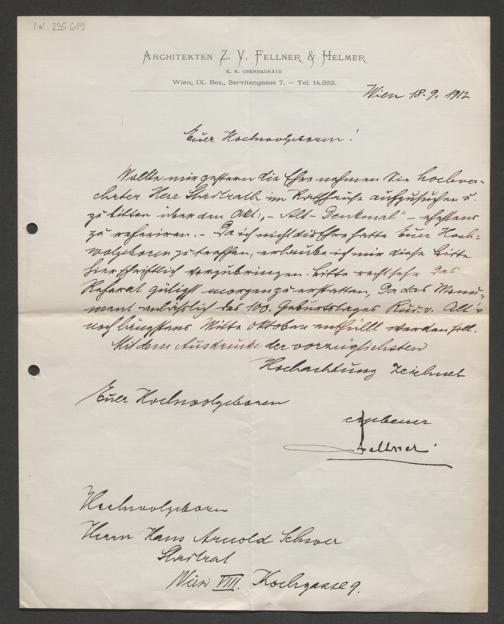 I.N. 235.649
ARCHITEKTEN Z. V. FELLNER & HELMER
K. K. OBERBAURÄTE
Wien, IX. Bez., Servitengasse 7. – Tel. 14.383.
Wien 18.9.1912
Euer Hochwolgeboren!
Wollte mir gestern die Ehre nehmen Sie hochver-
ehrter Herr Stadtrath im Rathhause aufzusuchen u.
zu bitten über den Akt: „Alt-Denkmal“ ehestens
zu referiren. – Da ich nicht die Ehre hatte Euer Hoch-
wolgeboren zu treffen, erlaube ich mir diese Bitte
hier schriftlich vorzubringen. Bitte recht sehr das
Referat gütigst morgen zu erstatten, da das Monu-
ment anlässlich des 100. Geburtstages Rud. v. Alt's
noch längstens Mitte Oktober enthüllt werden soll.
Mit dem Ausdrucke der vorzüglichsten
Hochachtung zeichnet
Euer Hochwolgeboren
ergebener
Fellner
Hochwolgeboren
Herrn Hans Arnold Schwer
Stadtrat
Wien VIII. Kochgasse 9.